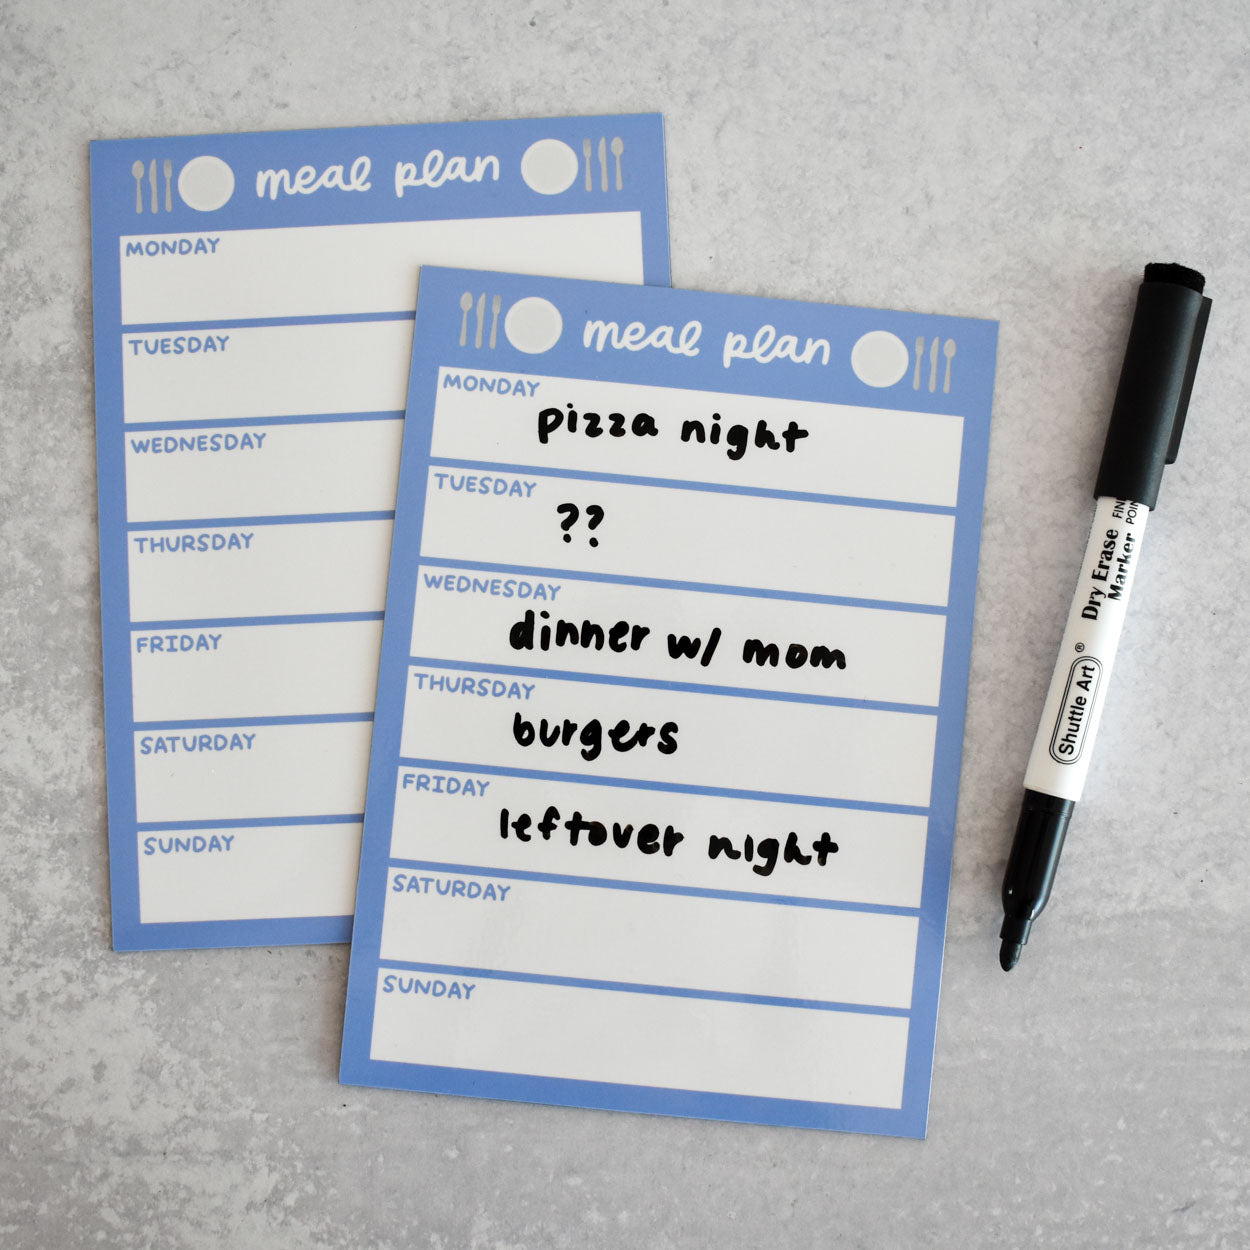 meal plan
MONDAY
TUESDAY
WEDNESDAY
THURSDAY
FRIDAY
SATURDAY
SUNDAY
meal plan
MONDAY
pizza night
TUESDAY
??
WEDNESDAY
dinner w/ mom
THURSDAY
burgers
FRIDAY
leftover night
SATURDAY
SUNDAY
Shuttle Art®
Dry Erase
Marker